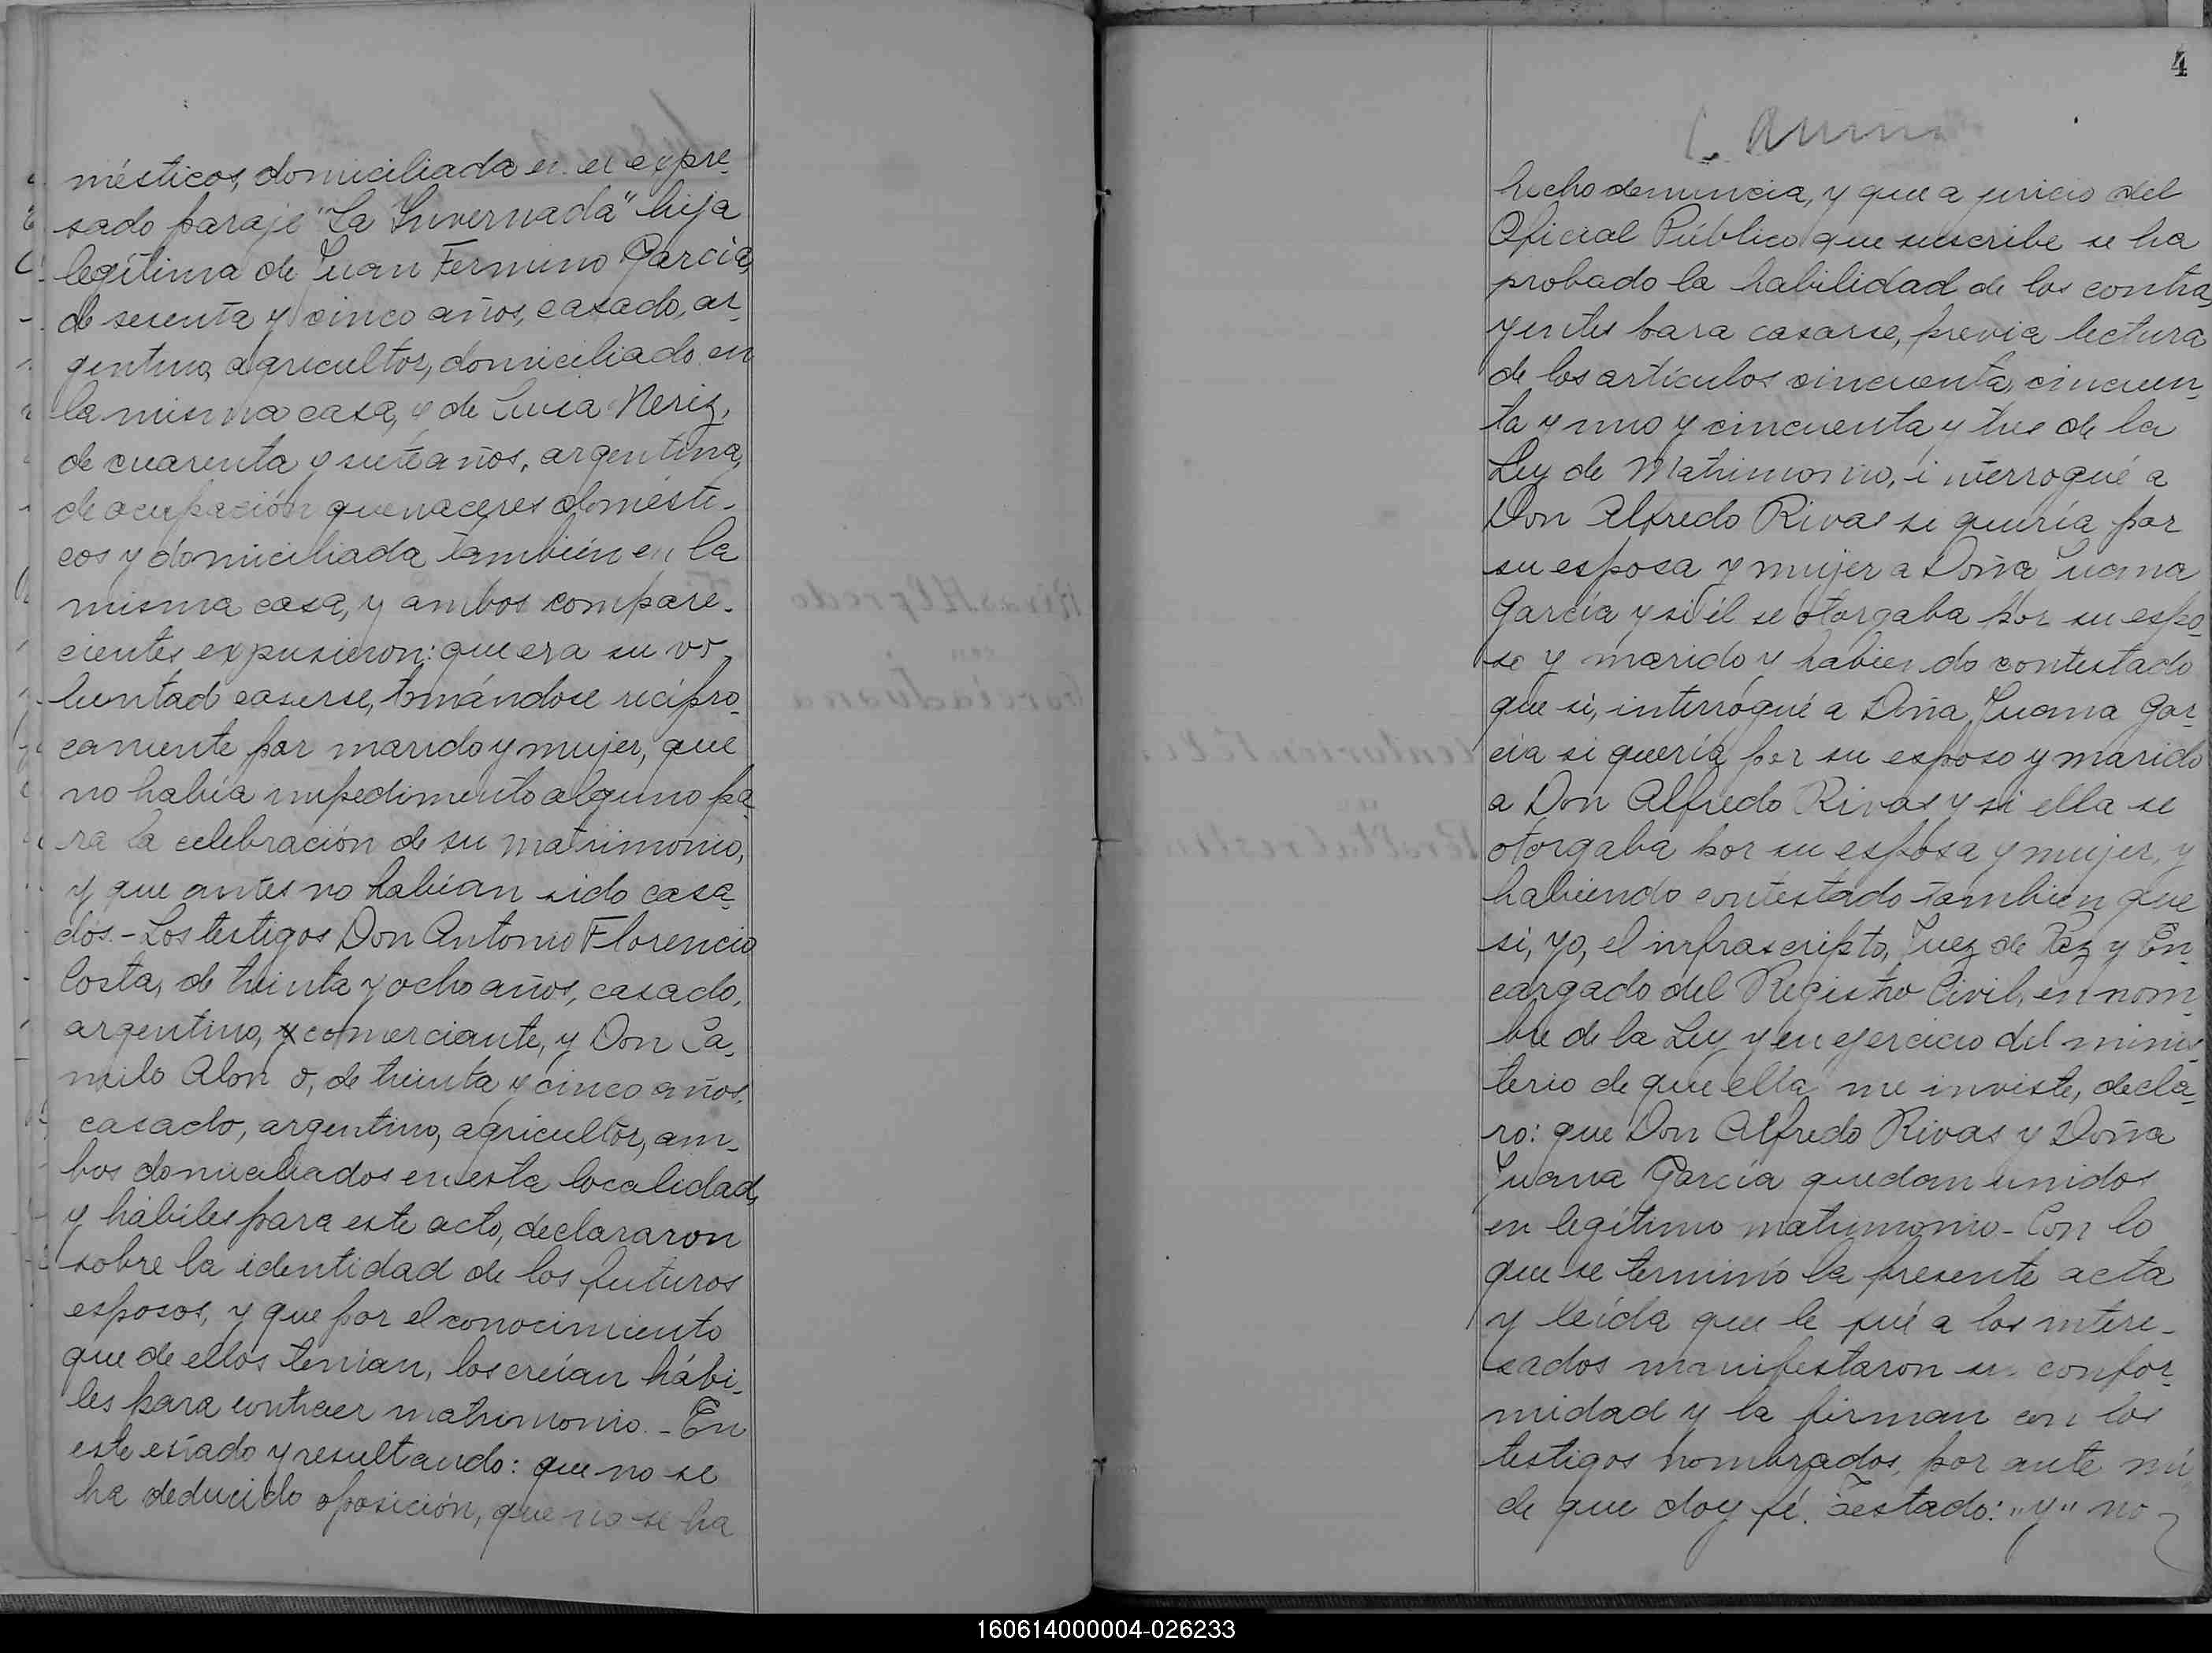 mésticos, domiciliada en el expre-
sado paraje "La Invernada" hija
legítima de Juan Fermino García,
de sesenta y cinco años, casado, ar-
gentino, agricultor, domiciliado en
la misma casa, y de Luisa Neriz,
de cuarenta y siete años, argentina,
de ocupación quehaceres domésti-
cos y domiciliada también en la
misma casa, y ambos compare-
cientes expusieron: que era su vo-
luntad casarse, tomándose recípro-
camente por marido y mujer, que
no había impedimento alguno pa-
ra la celebración de su matrimonio,
y que antes no habían sido casa-
dos. - Los testigos Don Antonio Florencio
Costa, de treinta y ocho años, casado,
argentino, y comerciante, y Don Ca-
milo Alon o, de treinta y cinco años,
casado, argentino, agricultor, am-
bos domiciliados en esta localidad,
y hábiles para este acto, declararon
sobre la identidad de los futuros
esposos, y que por el conocimiento
que de ellos tenían, los creían hábi-
les para contraer matrimonio. - En
este estado y resultando: que no se
ha deducido oposición, que no se ha
Rivas Alfredo
con
García Juana
4
hecho denuncia, y que a juicio del
Oficial Público que suscribe se ha
probado la habilidad de los contra-
yentes para casarse, previa lectura
de los artículos cincuenta, cincuen-
ta y uno y cincuenta y tres de la
Ley de Matrimonio, interrogué a
Don Alfredo Rivas si quería por
su esposa y mujer a Doña Juana
García y si él se otorgaba por su espo-
so y marido y habiendo contestado
que si, interrogué a Doña Juana Gar-
cía si quería por su esposo y marido
a Don Alfredo Rivas y si ella se
otorgaba por su esposa y mujer, y
habiendo contestado tambien que
si, yo, el infrascripto, Juez de Paz y En-
cargado del Registro Civil, en nom-
bre de la Ley y en ejercicio del minis-
terio de que ella me inviste, decla-
ro: que Don Alfredo Rivas y Doña
Juana García quedan unidos
en legítimo matrimonio - Con lo
que se terminó la presente acta
y leída que le fué a los intere-
sados manifestaron su confor-
midad y la firman con los
testigos nombrados, por ante mí
de que doy fé. Testado: "y" no
160614000004-026233